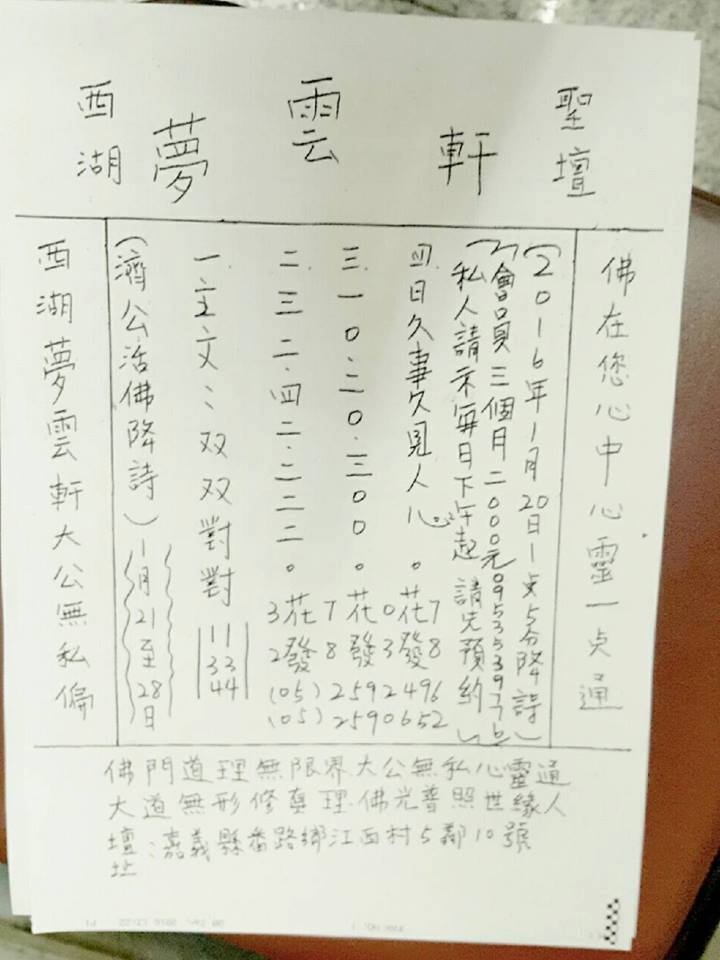 西湖夢雲軒聖壇
西湖夢雲軒大公無私偏
(濟公活佛降詩)1月21至28日
一.主文:双双對對
11
33
44
二.三二.四二.二二二。
三.一0.二0.三00。
四.日久事久見人心。
3花7花0花7
2發8發3發8
(05)2592496
(05)2590652
私人請示每日下午起 請先預約)
(會員三個月二000元
(2016年1月20日1点5分降詩)
佛在您心中心靈一点通
佛門道理無限界大公無私心靈通
大道無形修真理.佛光普照世緣人
壇址:嘉義縣番路鄉江西村5鄰10號